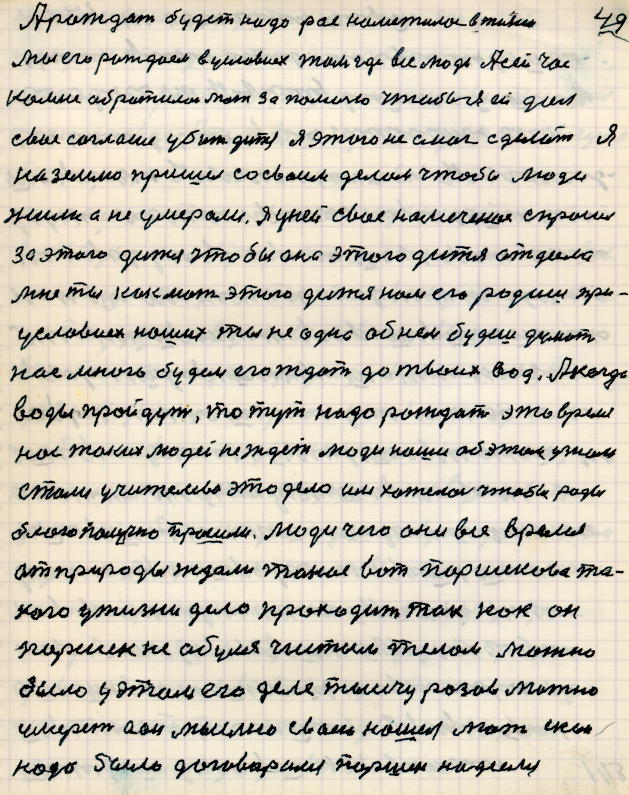 А рождат будет надо рас наметилос в жизни 49
мы его рождаем в условиях там где все люди А сей час
комне обратилас мат за помочю чтобы я ей дал
свае согласие убит дитя я этого не смог сделат Я
на землю пришел со своим делам чтобы люди
жили а не умерали. я у ней свае намеченае спросил
за этого дитя чтобы она этого дитя отдала
мне ты как мат этого дитя нам его родиш при-
условиях наших ты не одна об нем будиш думат
нас много будем его ждат до твоих вод. А когда
воды пройдут, то тут надо рождат это время
нас таких людей не ждет люди наши об этом узнали
стали учителева это дело им хотелос чтобы роды
благополучно прошли. Люди чего они все время
от природы ждали такое вот паршекова та-
кого у жизни дело проходит так как он
паршек не обуля чистим телом можно
было у этом его деле тысичу розов можно
умерет а он мыслю сваю нашел мат
надо было договарали паршик надеели